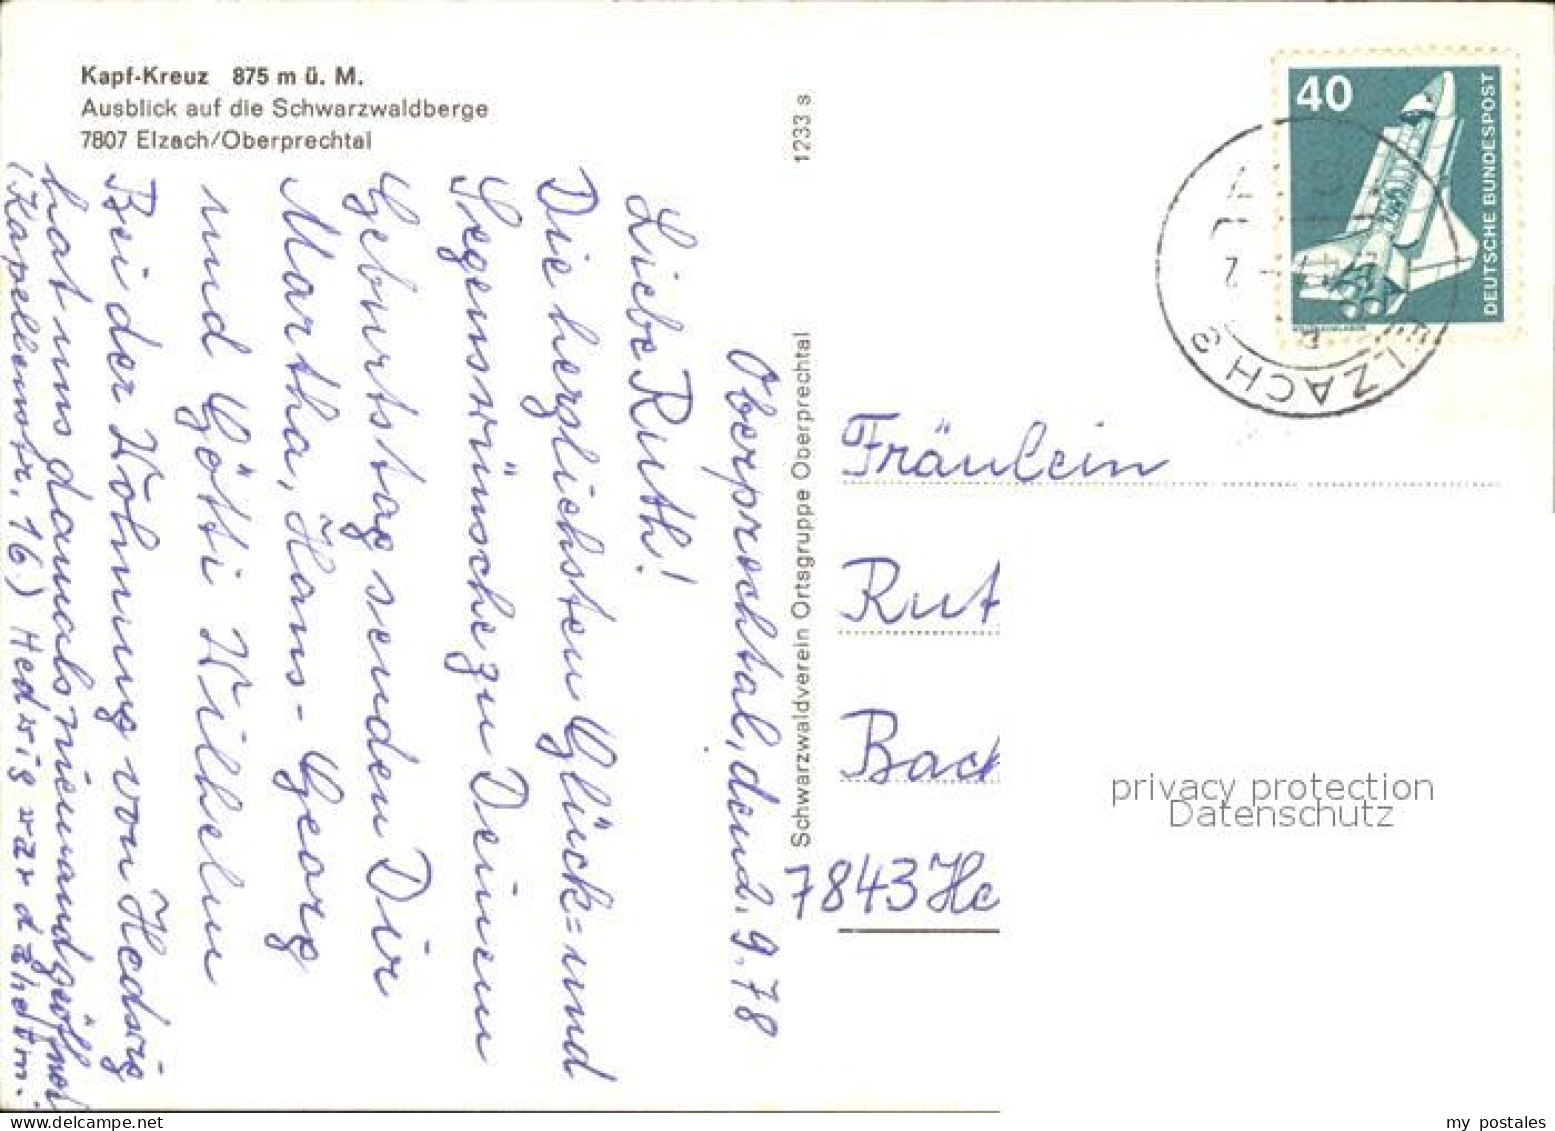 Kapf-Kreuz 875 m ü. M.
Ausblick auf die Schwarzwaldberge
7807 Elzach/Oberprechtal
1233 s
Schwarzwaldverein Ortsgruppe Oberprechtal
40
DEUTSCHE BUNDESPOST
ELZACH 3
Oberprechtal, den 1.9.78
Liebe Ruth!
Die herzlichsten Glück= und
Segenswünsche zu Deinem
Geburtstag senden Dir
Martha, Hans-Georg
und Götti Wilhelm
Bei der Wohnung von Hedwig
hat uns damals niemand geöffnet
(Kapellenstr. 16) Hedwig war daheim.
Fräulein
Rut
Back
7843 He
privacy protection
Datenschutz
my postales